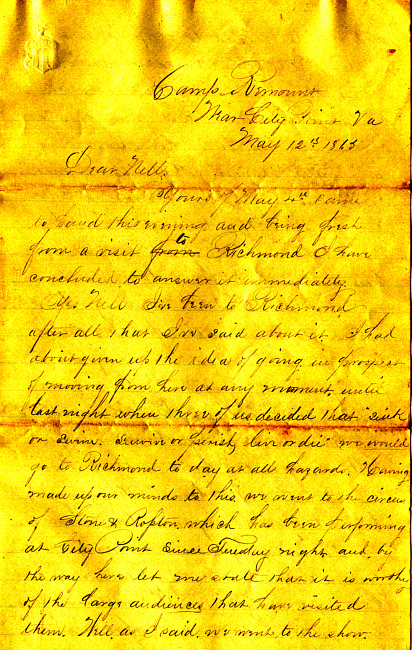 Camp Remount
Near City Point Va
May 12th 1865
Dear Nell.
Yours of May 4th came
to hand this evening and being fresh
from a visit from to Richmond I have
concluded to answer it immediately.
Yes Nell I've been to Richmond
after all that I've said about it. I had
about given up the idea of going in prospect
of moving from here at any moment, until
last night when three of us decided that "sink
or swim, survive or perish, live or die" we would
go to Richmond to day at all hazards. Having
made up our minds to this, we went to the circus
of Stone & which has been performing
at City Point since Tuesday night and, by
the way here let me state that it is worthy
of the large audiences that have visited
them. Well, as I said, we went to the show